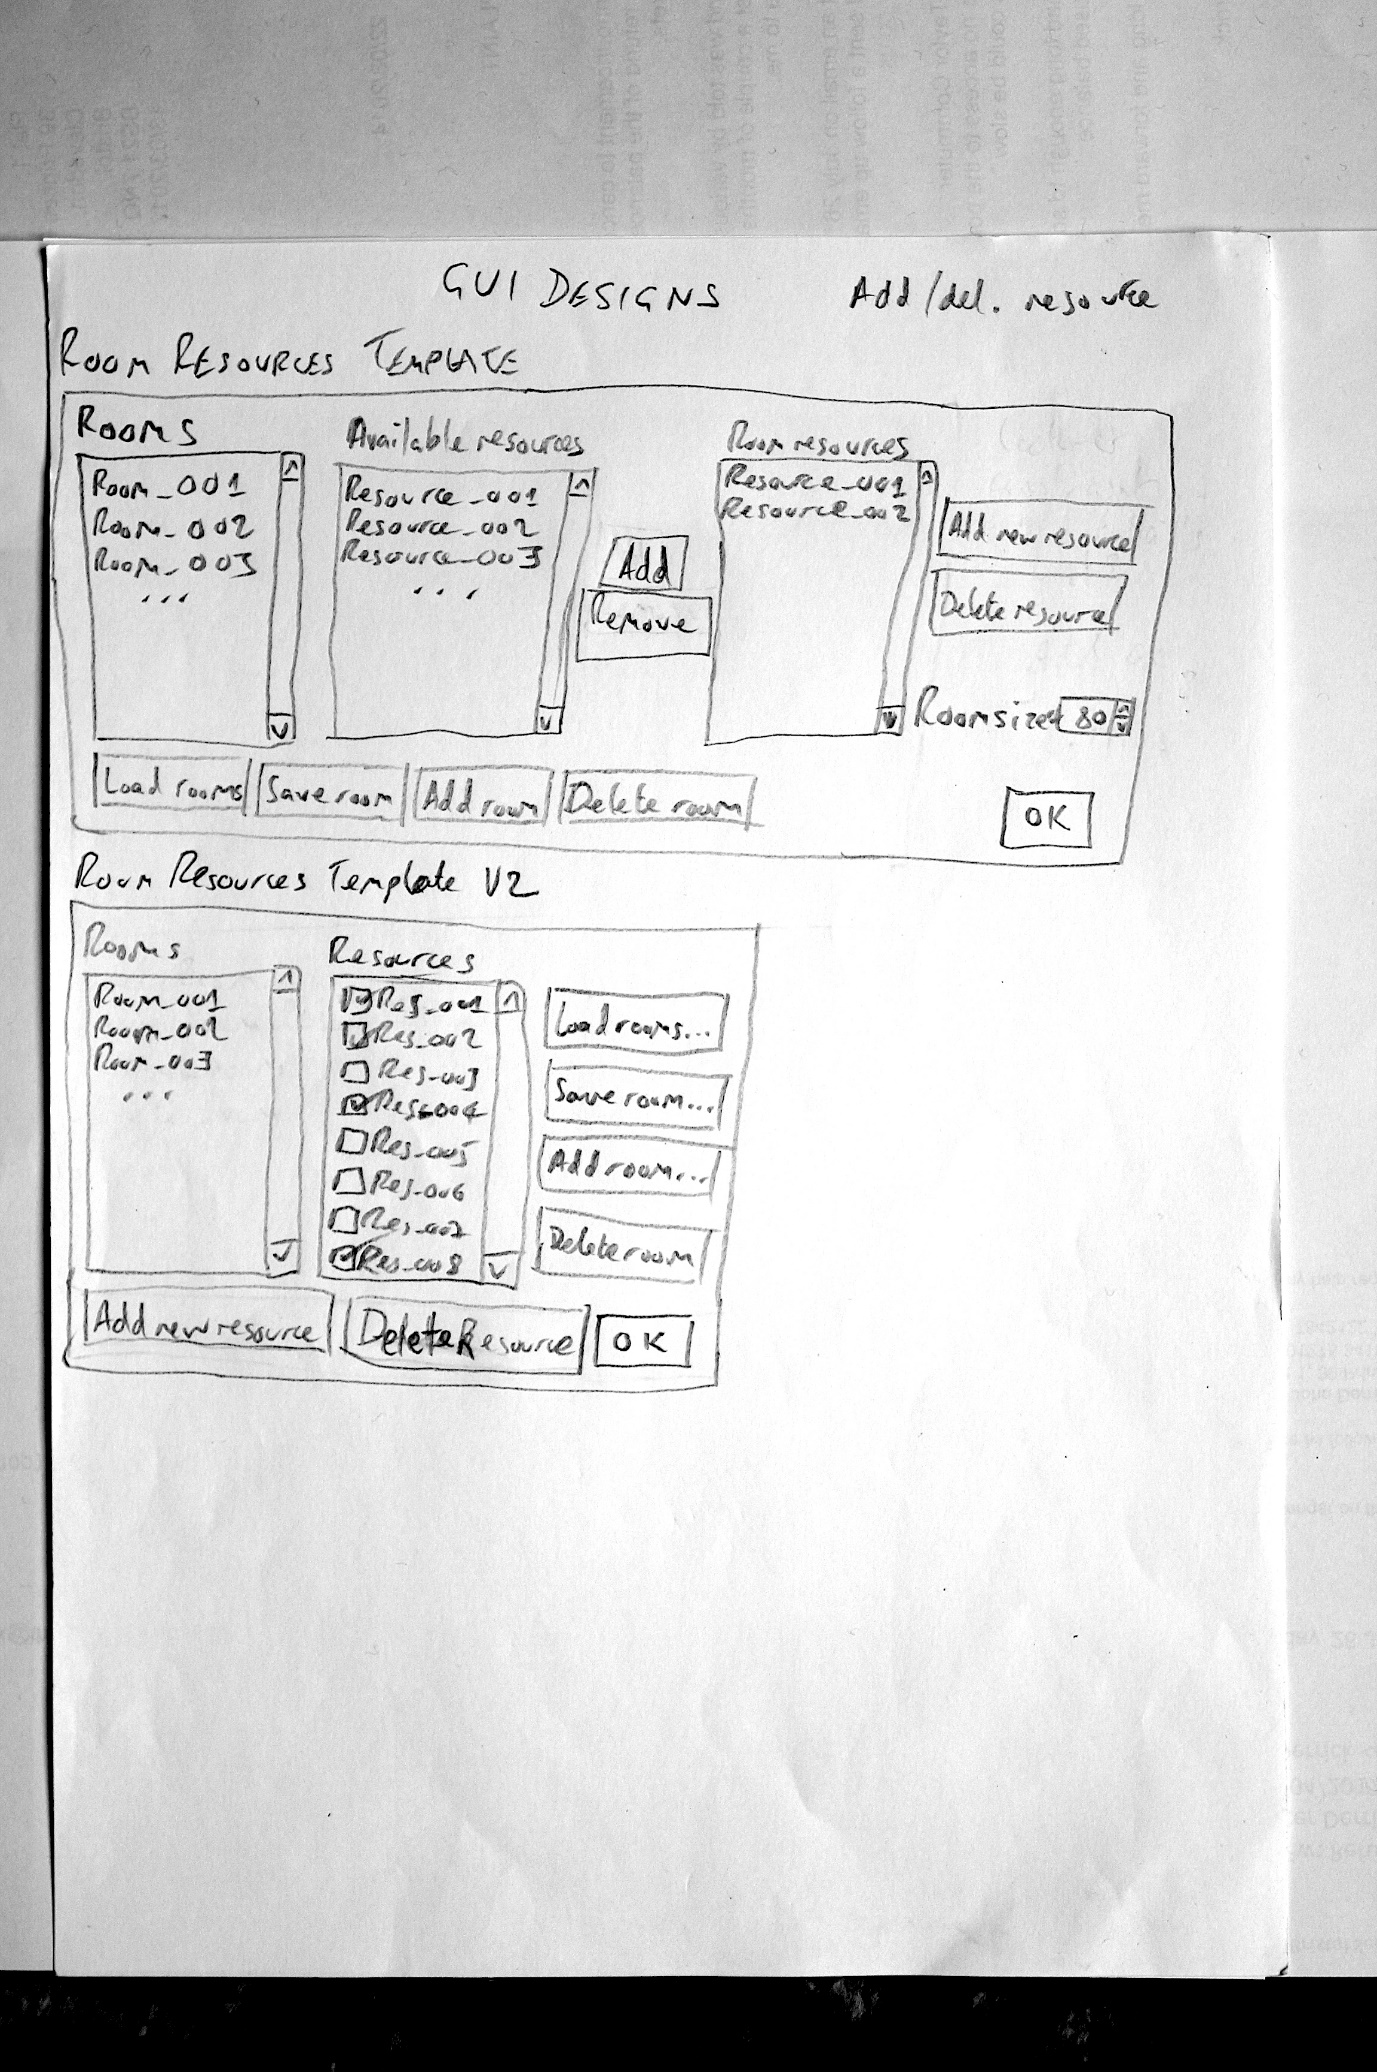 GUI DESIGNS
Add/del. resource
ROOM RESOURCES TEMPLATE
Rooms
Room_001
Room_002
Room_003
...
Available resources
Resource_001
Resource_002
Resource_003
...
Add
Remove
Room resources
Resource_001
Resource_002
Add new resource
Delete resource
Roomsize
80
Load rooms
Save room
Add room
Delete room
OK
Room Resources Template V2
Rooms
Room_001
Room_002
Room_003
...
Resources
Res_001
Res_002
Res_003
Res_004
Res_005
Res_006
Res_007
Res_008
Load rooms...
Save room...
Add room...
Delete room
Add new resource
Delete Resource
OK